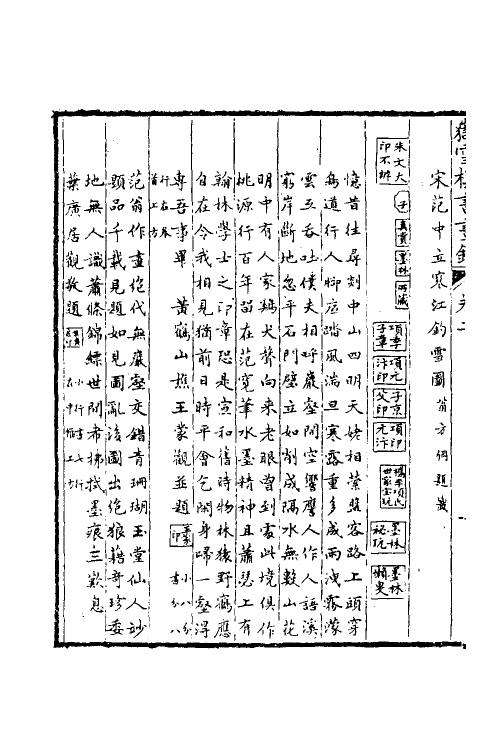 宋范中立寒江釣雪圖 翁方綱題籤
朱文大印不辨 子 真賞 墨林 所藏 項子京章 項元汴印 子京父印 項元汴印 檇李項氏世家寶玩 墨林秘玩 墨林嬾叟
憶昔往尋刻中山四明天姥相縈盤客路上頭穿
鳥道行人腳底踏風湍旦寒露重多成雨洩霧濛
雲互吞吐僕夫相呼巖壑間空響應人作人語溪
窮岸斷地忽平石門壁立如削成隔水無數山花
明中有人家鷄犬聲向來老眼曾到處此境俱作
桃源行百年留在范寬筆水墨精神且蕭瑟上有
翰林學士之印章恐是宣和舊時物林猿野鶴應
自在令我相見猶前日時平會乞閒身歸一壑得
專吾事畢 黃鶴山樵王蒙觀並題 王蒙印 小八分書分八
行右卷首上方
范翁作畫絕代無巖壑交錯青珊瑚玉堂仙人妙
題品千載見題如見圖亂後圖出絕狼藉奇珍委
地無人識蕭條錦縹世間希拂拭墨痕三歎息
葉廣居觀敬題 小行書七行右中幅上方